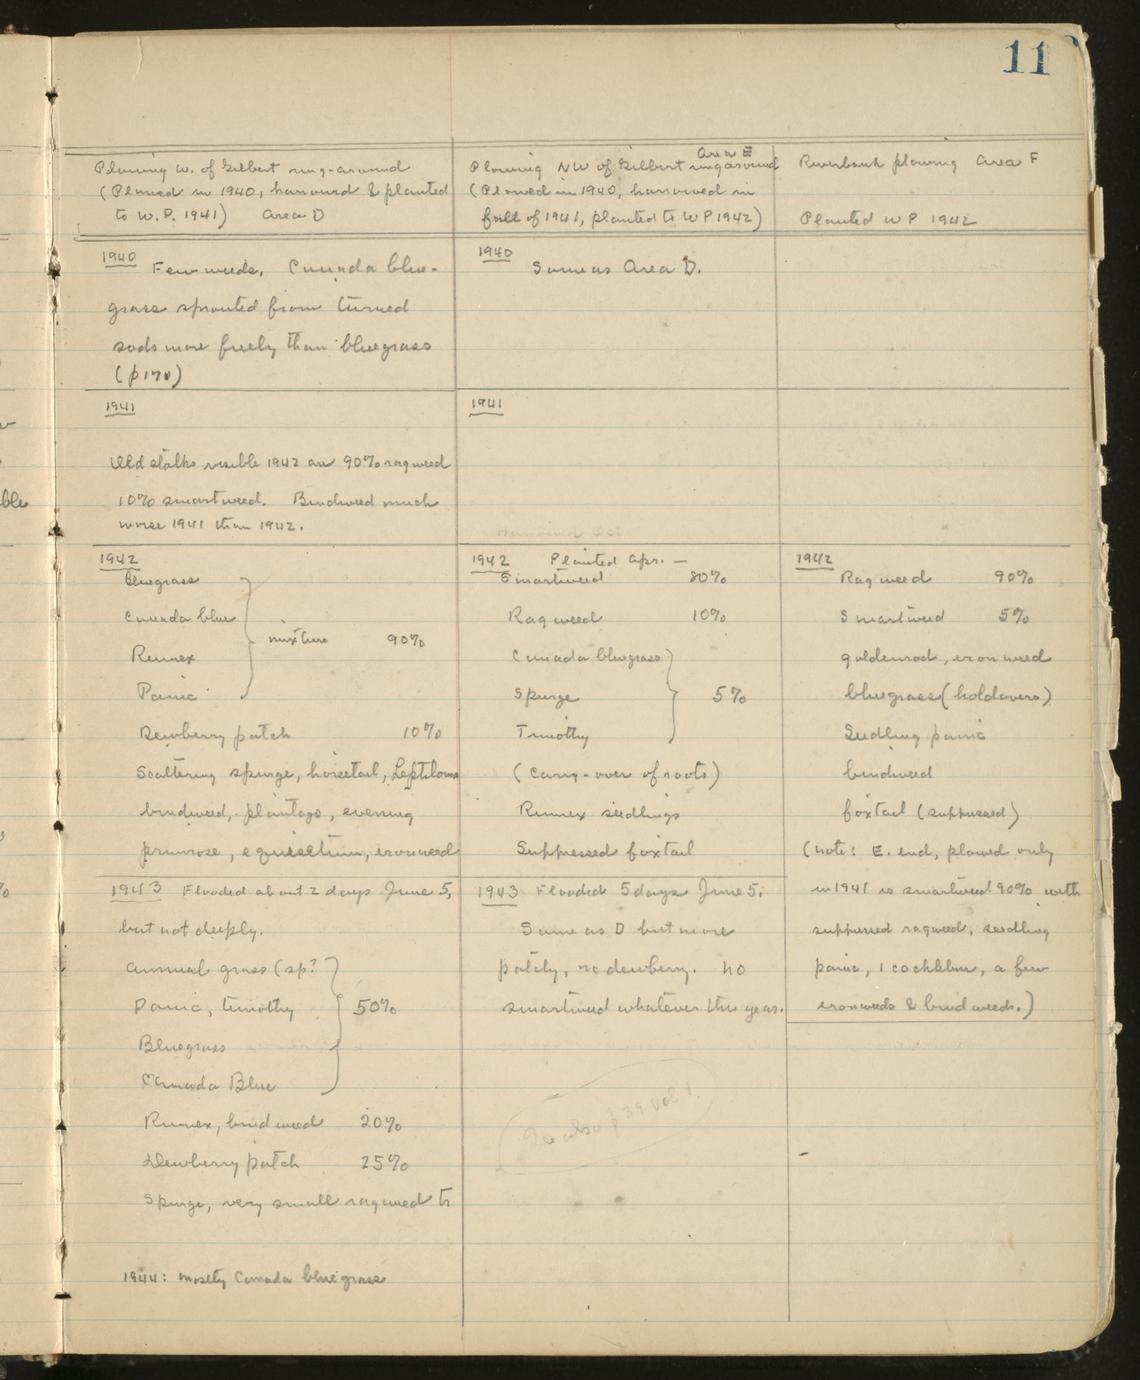 11
Plowing W. of Gilbert ring-around
(Plowed in 1940, harrowed & planted
to W.P. 1941) Area D
1940 Few weeds. Canada blue-
grass sprouted from turned
sods more freely than bluegrass
(p170)
1941
Old stalks visible 1942 are 90% ragweed
10% smartweed. Bindweed much
worse 1941 than 1942.
1942
Bluegrass
Canada blue
mixture 90%
Rumex
Panic
Dewberry patch 10%
Scattering spurge, horsetail, Leptiloma
bindweed, plantago, evening
primrose, equisetum, ironweed
1943 Flooded about 2 days June 5,
but not deeply.
Annual grass (sp?
Panic, timothy 50%
Bluegrass
Canada Blue
Rumex, bindweed 20%
Dewberry patch 25%
Spurge, very small ragweed tr
1944: mostly Canada bluegrass
Area E
Plowing NW of Gilbert ringaround
(Plowed in 1940, harrowed in
fall of 1941, planted to WP 1942)
1940
Same as Area D.
1941
Harrowed Oct
1942 Planted Apr. —
Smartweed 80%
Ragweed 10%
Canada bluegrass
Spurge 5%
Timothy
(Carry-over of roots)
Rumex seedlings
Suppressed foxtail
1943 Flooded 5 days June 5.
Same as D but more
patchy, no dewberry. No
smartweed whatever this year.
See also p 39 Vol 1.
Riverbank plowing Area F
Planted WP 1942
1942
Ragweed 90%
Smartweed 5%
goldenrod, ironweed
bluegrass (holdovers)
Seedling panic
bindweed
foxtail (suppressed)
(Note: E. end, plowed only
in 1941 is smartweed 90% with
suppressed ragweed, seedling
panic, 1 cocklebur, a few
ironweeds & bindweeds.)